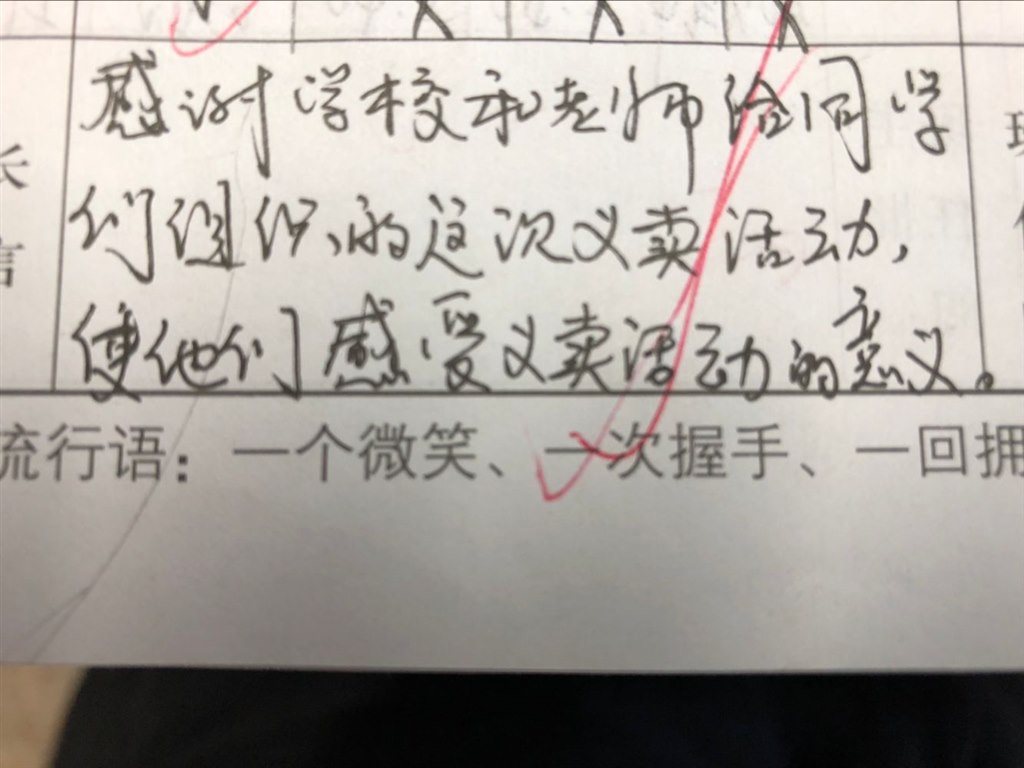 感谢学校和老师给同学
长
们组织的这次义卖活动,
言
使他们感受义卖活动的意义。
流行语：一个微笑、一次握手、一回拥